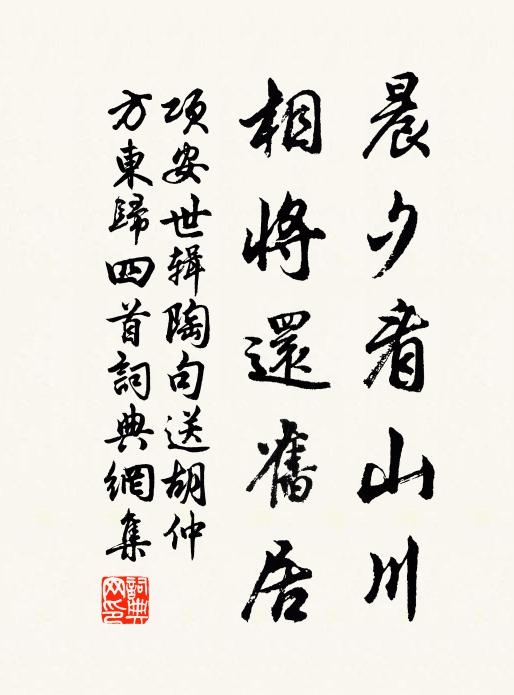 晨夕看山川
相將還舊居
項安世辑陶句送胡仲
方東歸四首詞典網集
詞典
网印